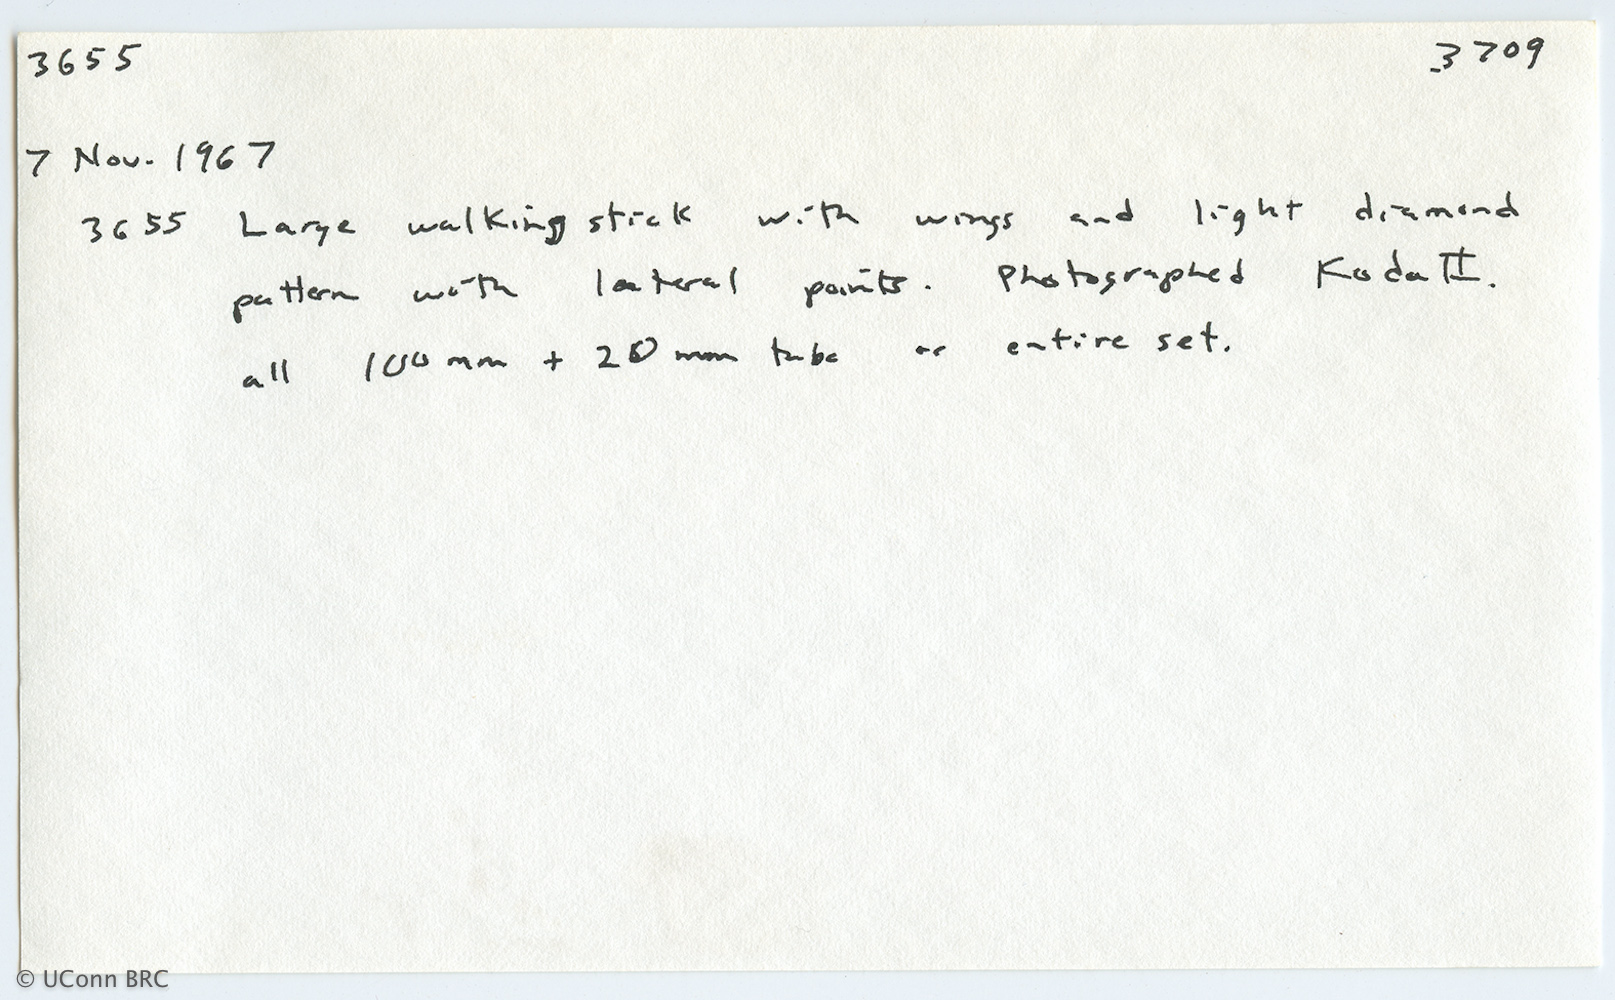 3655 3709
7 Nov. 1967
3655 Large walking stick with wings and light diamond
pattern with lateral points. Photographed Koda II.
all 100 mm + 20 mm tube or entire set.
© UConn BRC